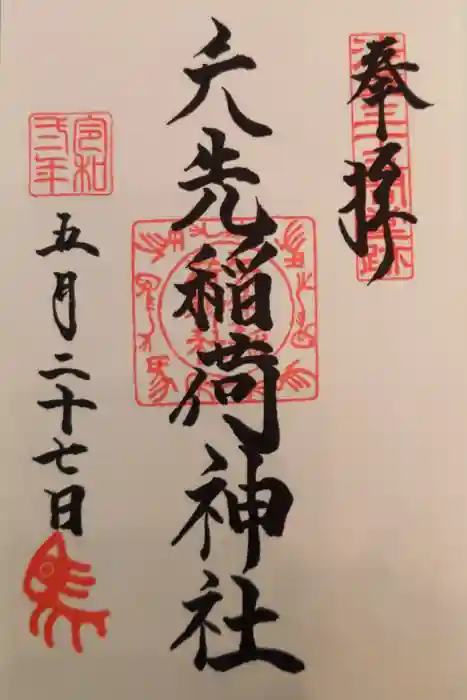 奉拝
矢先稲荷神社
令和
弐年
五月二十七日